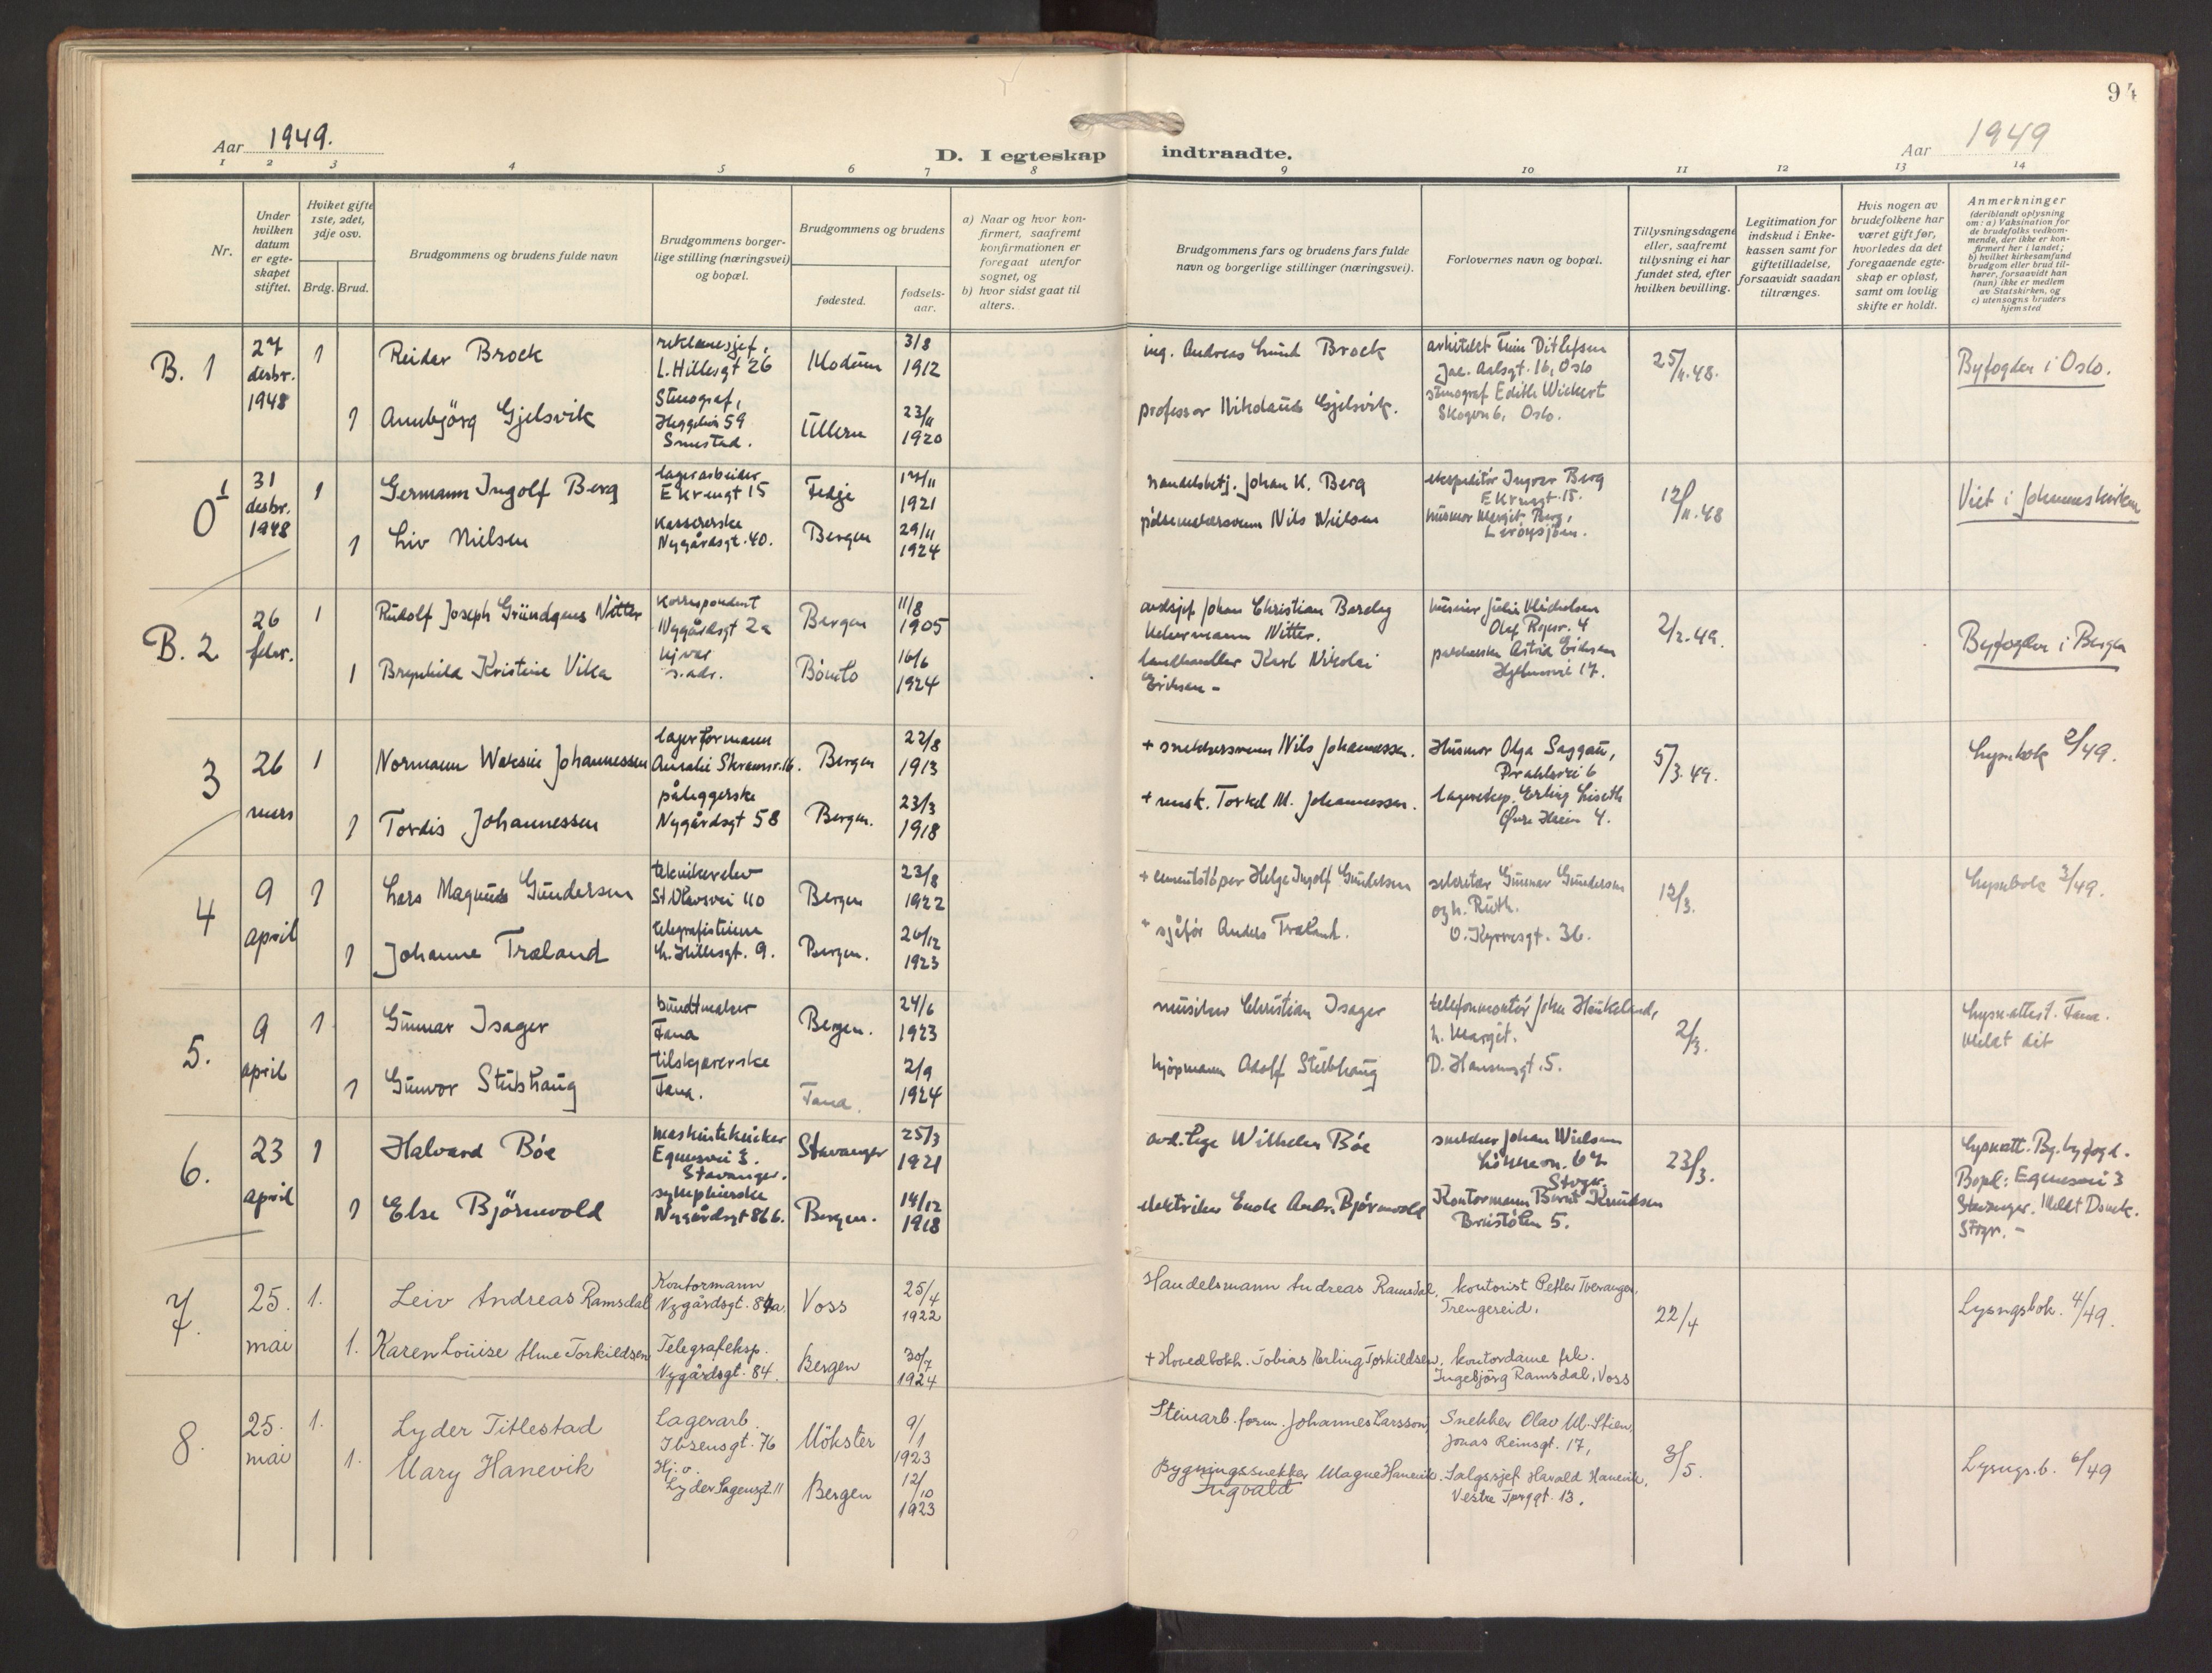 94
Aar 1949.
D. I egteskap indtraadte.
Aar 1949
1 2 3 4 5 6 7 8 9 10 11 12 13 14
Nr.
Under hvilken datum er egteskapet stiftet.
Hviket gifte 1ste, 2det, 3dje osv.
Brdg. Brud.
Brudgommens og brudens fulde navn
Brudgommens borgerlige stilling (næringsvei) og bopæl.
Brudgommens og brudens
fødested.
fødselsaar.
a) Naar og hvor konfirmert, saafremt konfirmationen er foregaat utenfor sognet, og
b) hvor sidst gaat til alters.
Brudgommens fars og brudens fars fulde navn og borgerlige stillinger (næringsvei).
Forlovernes navn og bopæl.
Tillysningsdagene eller, saafremt tillysning ei har fundet sted, efter hvilken bevilling.
Legitimation for indskud i Enkekassen samt for giftetilladelse, forsaavidt saadan tiltrænges.
Hvis nogen av brudefolkene har været gift før, hvorledes da det foregaaende egteskap er opløst, samt om lovlig skifte er holdt.
Anmerkninger
(deriblandt oplysning om: a) Vaksination for de brudefolks vedkommende, der ikke er konfirmert her i landet; b) hvilket kirkesamfund brudgom eller brud tilhører, forsaavidt han (hun) ikke er medlem av Statskirken, og c) utensogns bruders hjemsted
B. 1 27 desbr. 1948 1 Reidar Brock reklamesjef, L. Hillesgt 26 Modum 3/8 1912 ing. Andreas Lund Brock arkitekt Finn Ditlefsen Jac. Aalsgt. 16, Oslo 25/11.48. Byfogden i Oslo.
1 Annbjörg Gjelsvik Stenograf, Heggeliv 59 Smestad. Ullern 23/11 1920 professor Nikolaus Gjelsvik. stenograf Edith Wickert Skogvn 6, Oslo.
0 1 31 desbr. 1948 1 Germann Ingolf Berg lagerarbeider Ekrengt 15 Fedje 17/11 1921 handelsbetj. Johan K. Berg ekspeditör Ingvar Berg Ekrengt. 15. 12/11.48 Viet i Johanneskirken
1 Liv Nielsen Kassererske Nygårdsgt. 40. Bergen 29/11 1924 pölsemakersvenn Nils Nielsen husmor Margit Berg, Leröysjöen.
B. 2 26 febr. 1 Rudolf Joseph Gründgens Nitter Korrespondent Nygårdsgt 2a Bergen 11/8 1905 avdsjef Johan Christian Barclay Kehrmann Nitter. husmor Julie Michelsen Olaf Ryesv. 4 2/2.49. Byfogden i Bergen
1 Brynhild Kristine Vika Hj.vær s.adr. Bömlo 16/6 1924 landhandler Karl Nikolai Eriksen - Astrid Eriksen 17.
3 26 mars 1 Normann Johannessen lagerformann Amalie Skramsv. 16. Bergen 22/8 1913 + snekkersvenn Nils Johannessen. Husmor Olga Saggau, 6 5/3.49. Lysnbok 2/49.
1 Tordis Johannessen påleggerske Nygårdsgt 58 Bergen. 23/3 1918 + mask. Torkel M. Johannessen. lagereksp. Erling Liseth 4.
4 9 april 1 Lars Magnus Gundersen teknikerelev St Olavsvei 110 Bergen 23/8 1922 + sementstöper Helge Ingolf Gundersen sekretær Gunnar Gundersen og h. Ruth. 12/3. Lysnbok 3/49.
1 Johanne Træland telegrafistinne L. Hillesgt. 9. Bergen. 26/12 1923 sjåför Anders Træland. O. Kyrresgt. 36.
5. 9 april 1 Gunnar Isager buntmaker Fana Bergen. 24/6 1923 musiker Christian Isager telefonmontör John Haukeland, h. Margit. 2/3. Lysn.attest. Fana. Meldt dit
1 Gunvor Stubhaug tilskjærerske Fana. Fana. 2/9 1924 kjöpmann Adolf Stubhaug D. Hansensgt. 5.
6. 23 april 1 Halvard Böe maskintekniker Egenesvei 3. Stavanger. Stavanger 25/3 1921 avd. lege Wilhelm Böe snekker Johan Nielsen Lökkevn. 67 Stvgr. 23/3. Lysnatt. Bg. byfogd. Bopl: Egenesvei 3 Stavanger. Meldt Domk. Stvgr. -
1 Else Björnevold sykepleierske Nygårdsgt 86 b. Bergen. 14/12 1918 elektriker Enok Andr. Björnevold Kontormann Bernt Knudsen Brustölen 5.
7. 25. mai 1. Leiv Andreas Ramsdal Kontormann Nygårdsgt. 84a. Voss 25/4 1922 Handelsmann Andreas Ramsdal, kontorist Petter Tveranger, Trengereid. 22/4 Lysngsbok. 4/49.
1. Karen Louise Alme Torkildsen Telegrafeksp. Nygårdsgt. 84. Bergen 30/7 1924 + Hovedbokh. Tobias Merling Torkildsen, kontordame frk. Ingebjörg Ramsdal, Voss
8. 25. mai 1. Lyder Titlestad Lagerarb. Ibsensgt. 76 Mökster 9/1 1923 Steinarb. form. Johannes Larsson, Snekker Olav M. Stien, Jonas Reinsgt. 17, 3/5. Lysngs.b. 6/49
1. Mary Hanevik Hj. v. Lyder Sagensgt. 11 Bergen 12/10 1923 Bygningssnekker Magne Hanevik. Ingvald Salgssjef Harald Hanevik, Vestre Torggt. 13.